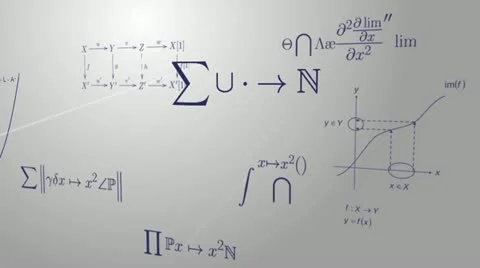 X u→ Y v→ Z w→ X[1]
↓f ↓g ↓h ↓f[1]
X' u'→ Y' v'→ Z' w'→ X'[1]
∑ ∪ · → ℕ
Θ ⋂ Λæ ∂² ∂ lim″ / ∂x / ∂x² lim
im(f)
y
y ∈ Y
x
x ∈ X
f : X → Y
y = f(x)
∑ ‖γδx ↦ x²∠ℙ‖
∫ x↦x²() ⋂
∏ ℙx ↦ x²ℕ